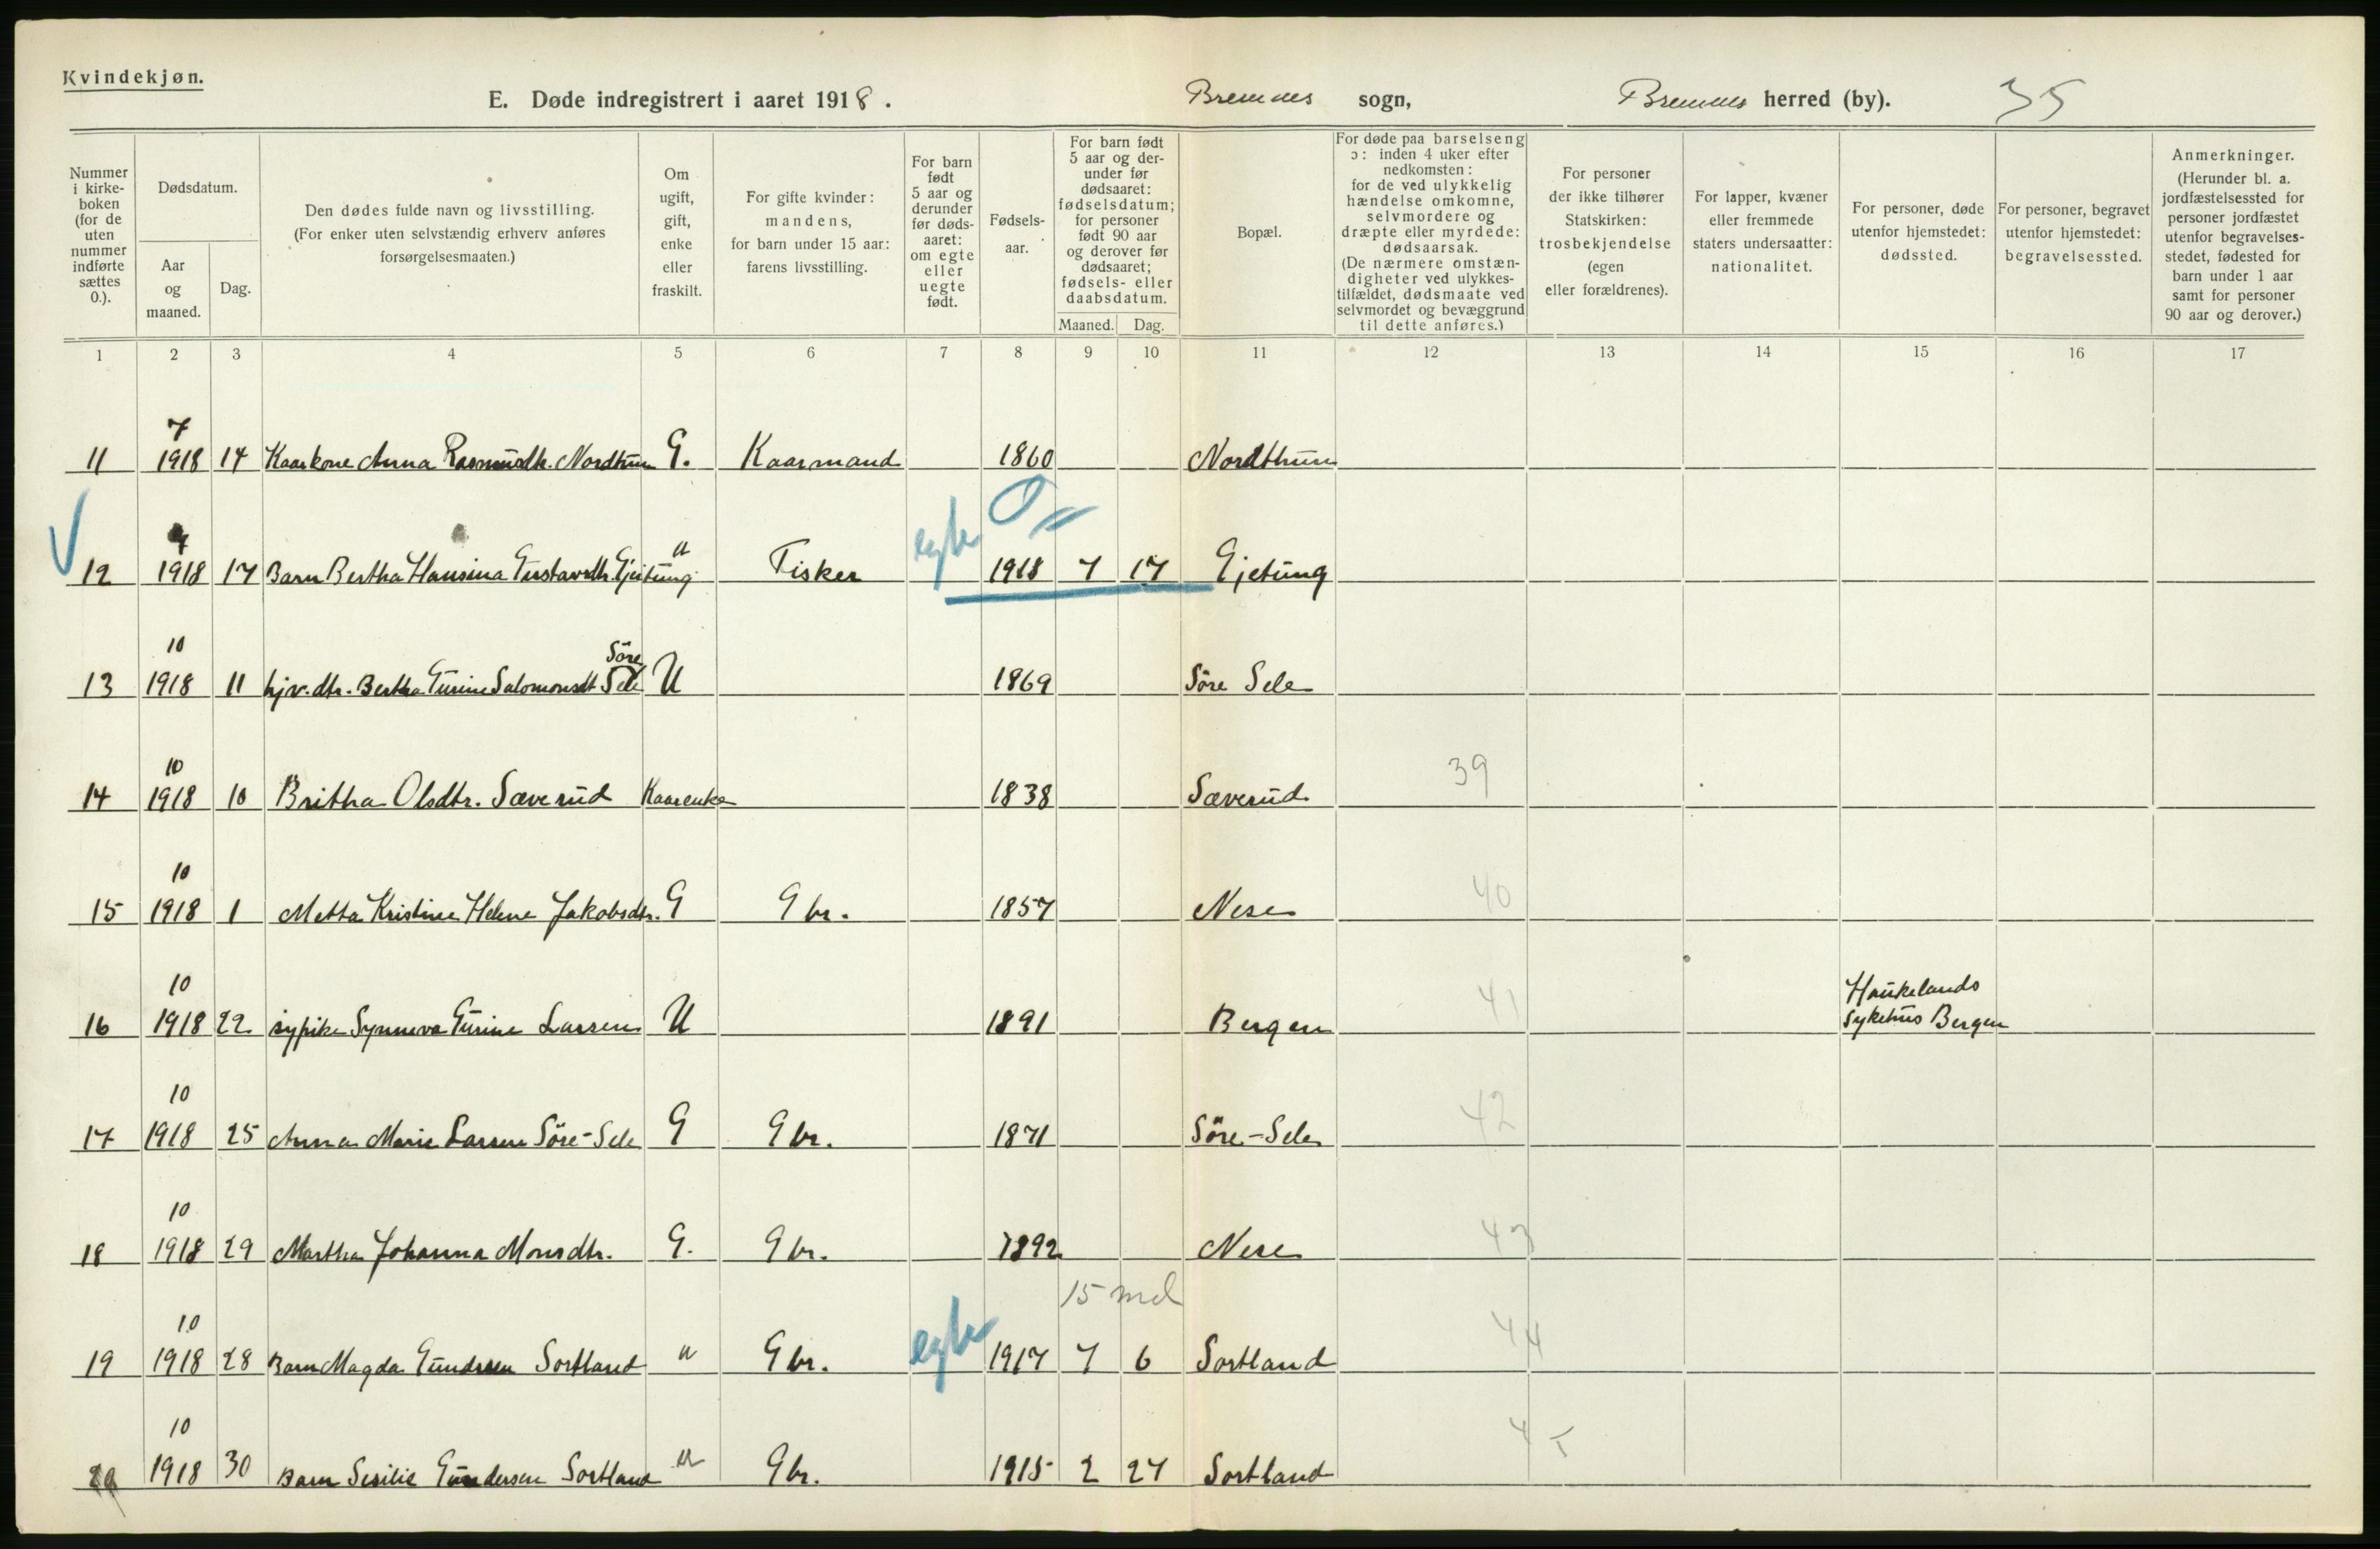 Kvindekjøn.
E. Døde indregistrert i aaret 1918. Bremnes sogn, Bremnes herred (by). 35
Nummer i kirke-boken (for de uten nummer indførte sættes 0.).
Dødsdatum.
Aar og maaned.
Dag.
Den dødes fulde navn og livsstilling.
(For enker uten selvstændig erhverv anføres forsørgelsesmaaten.)
Om ugift, gift, enke eller fraskilt.
For gifte kvinder: mandens, for barn under 15 aar: farens livsstilling.
For barn født 5 aar og derunder før døds-aaret: om egte eller uegte født.
Fødsels-aar.
For barn født 5 aar og der-under før dødsaaret: fødselsdatum; for personer født 90 aar og derover før dødsaaret; fødsels- eller daabsdatum.
Maaned. Dag.
Bopæl.
For døde paa barselseng ɔ: inden 4 uker efter nedkomsten: for de ved ulykkelig hændelse omkomne, selvmordere og dræpte eller myrdede: dødsaarsak. (De nærmere omstæn-digheter ved ulykkes-tilfældet, dødsmaate ved selvmordet og bevæggrund til dette anføres.)
For personer der ikke tilhører Statskirken: trosbekjendelse (egen eller forældrenes).
For lapper, kvæner eller fremmede staters undersaatter: nationalitet.
For personer, døde utenfor hjemstedet: dødssted.
For personer, begravet utenfor hjemstedet: begravelsessted.
Anmerkninger. (Herunder bl. a. jordfæstelsessted for personer jordfæstet utenfor begravelses-stedet, fødested for barn under 1 aar samt for personer 90 aar og derover.)
1 2 3 4 5 6 7 8 9 10 11 12 13 14 15 16 17
7
11 1918 14 Kaarkone Anna Rasmusdtr. Nordthun G. Kaarmand 1860 Nordthun
12 1918 17 Barn Bertha Hansina Gustavsdtr. Gjeitung u Fisker egte 1918 7 17 Gjetung
10 Söre
13 1918 11 hjv. dtr. Bertha Gurine Salomonsdt Sele U 1869 Söre Sele
10
14 1918 10 Britha Olsdtr. Sæverud Kaarenke 1838 Sæverud 39
10
15 1918 1 Metta Kristine Helene Jakobsdtr. G Gbr. 1857 Nese 40
10 Haukelands
16 1918 22 sypike Synneva Gurine Larsen U 1891 Bergen 41 sykehus Bergen
10
17 1918 25 Anna Marie Larsen Söre-Sele G Gbr. 1871 Söre-Sele 42
10
18 1918 29 Martha Johanna Monsdtr. G. Gbr. 1892 Nese 43
15 md
10
19 1918 28 Barn Magda Gundersen Sortland u Gbr. egte 1917 7 6 Sortland 44
10
20 1918 30 Barn Sesilie Gundersen Sortland u Gbr. 1915 2 27 Sortland 45